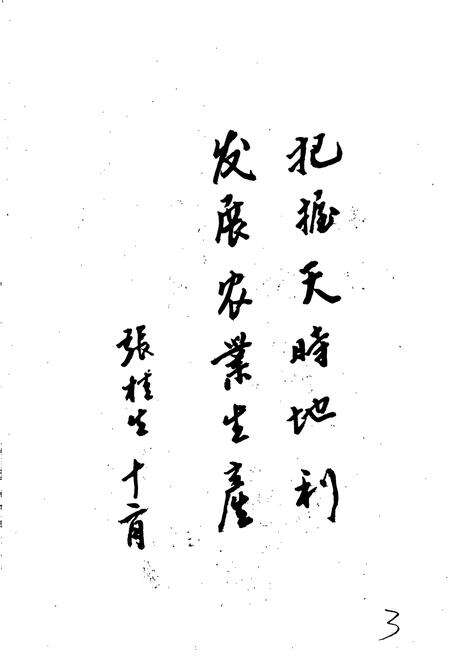 把握天時地利
发展农業生產
張桂生 十二月
3